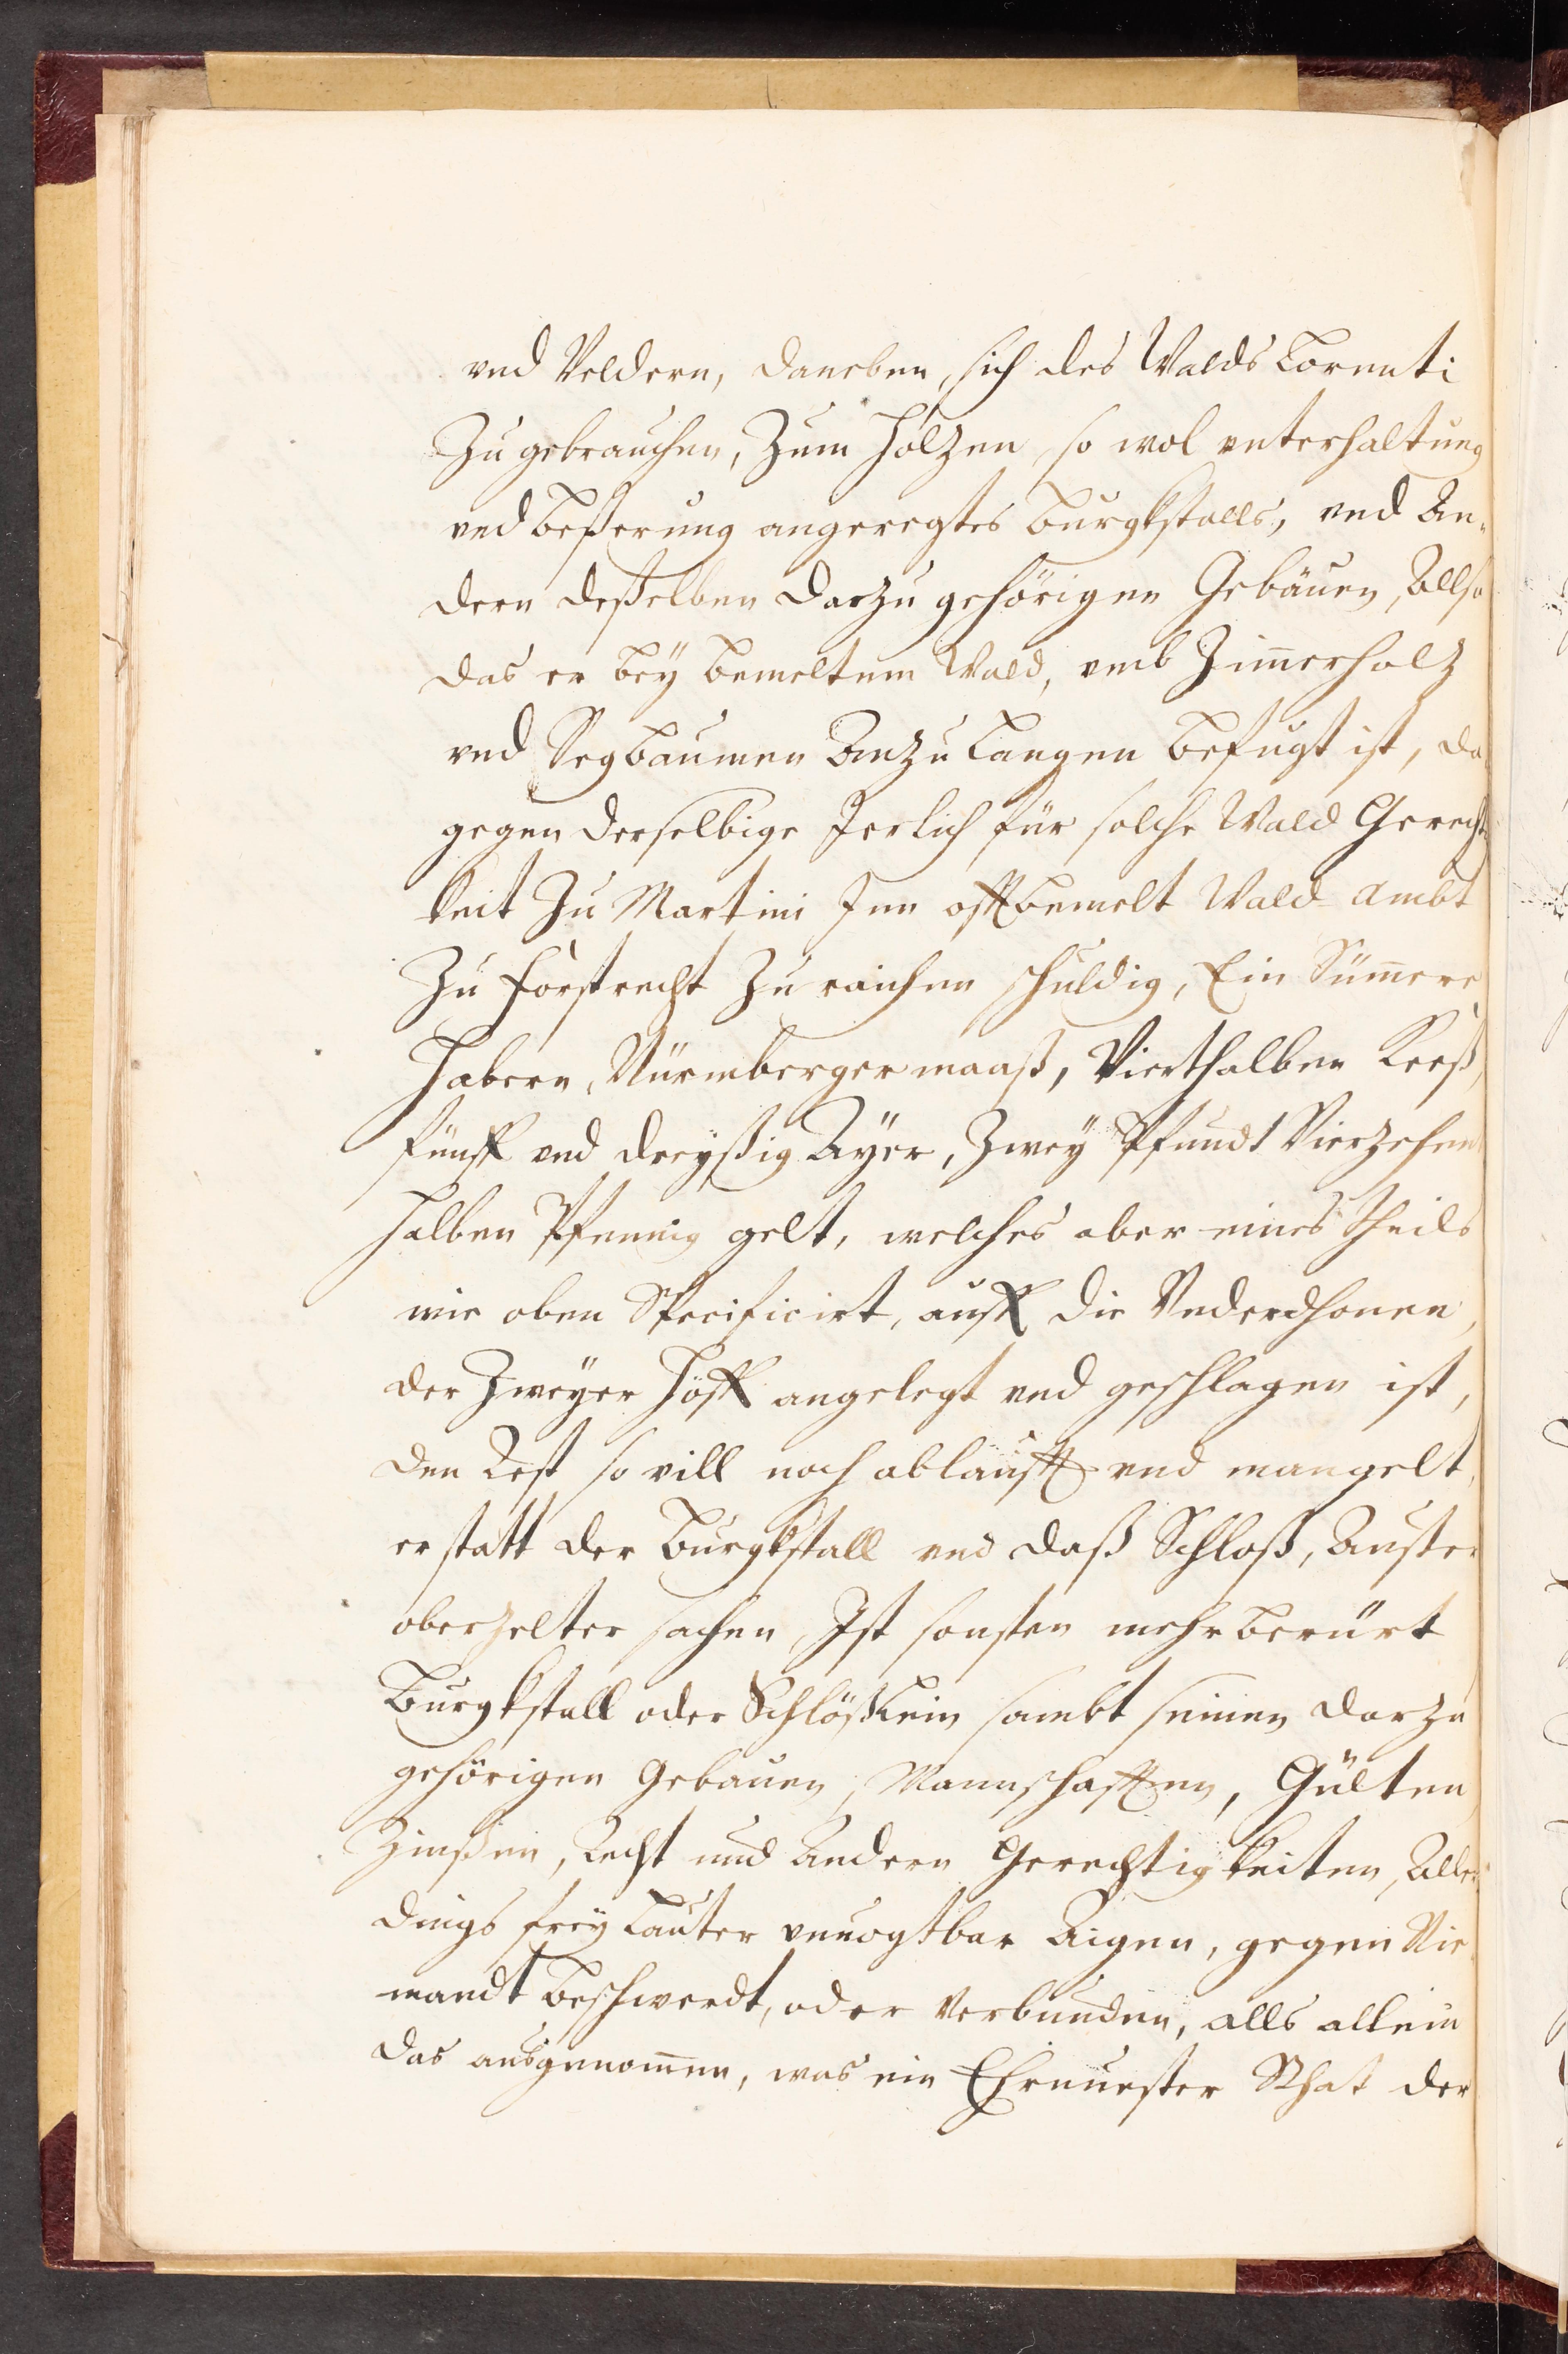 vnd Veldern, daneben, sich des Walds Lorenti
Zu gebrauchen, Zum Hölzen, so wol vnterhaltung
vnd besserung angeregtes Burgkstalls, vnd An-
dern desselben darzu gehörigen Gebäuen, Allso
das er bey bemeltem Wald, vmb Zimerholz
vnd Segbaumen Anzulangen befugt ist, da
gegen derselbige Jerlich für solche Wald Gerech
keit Zu Martini Inn offtbemelt Wald Ambt
Zu Forstrecht Zu raichen schuldig, Ein Sümere
Habern, Nürmberger maaß, Vierthalben Keeß,
fünff vnd dreyßig Ayer, Zwey Pfundt Vierzehen
halben Pfennig gelt, welches aber eines theils
wie oben Specificirt, auff die Vnderthonen,
der Zweyer Höff angelegt vnd geschlagen ist,
den Rest so vill noch ablaufft vnd mangelt,
erstatt der Burgkstall vnd daß Schloß, Ausser
oberzelter sachen, Ist sonsten mehrberürt
Burgkstall oder Schlößlein sambt seinen darzu
gehörigen Gebauen, Mannschafften, Gülten
Zinßen, Recht und Andern Gerechtigkeiten, Aller
dings frey lauter vnuogtbar Aigen, gegen Nie
mandt beschwerdt, oder Verbunden, alls allein
das ausgenomen, was ein Ehrnuester Rhat der